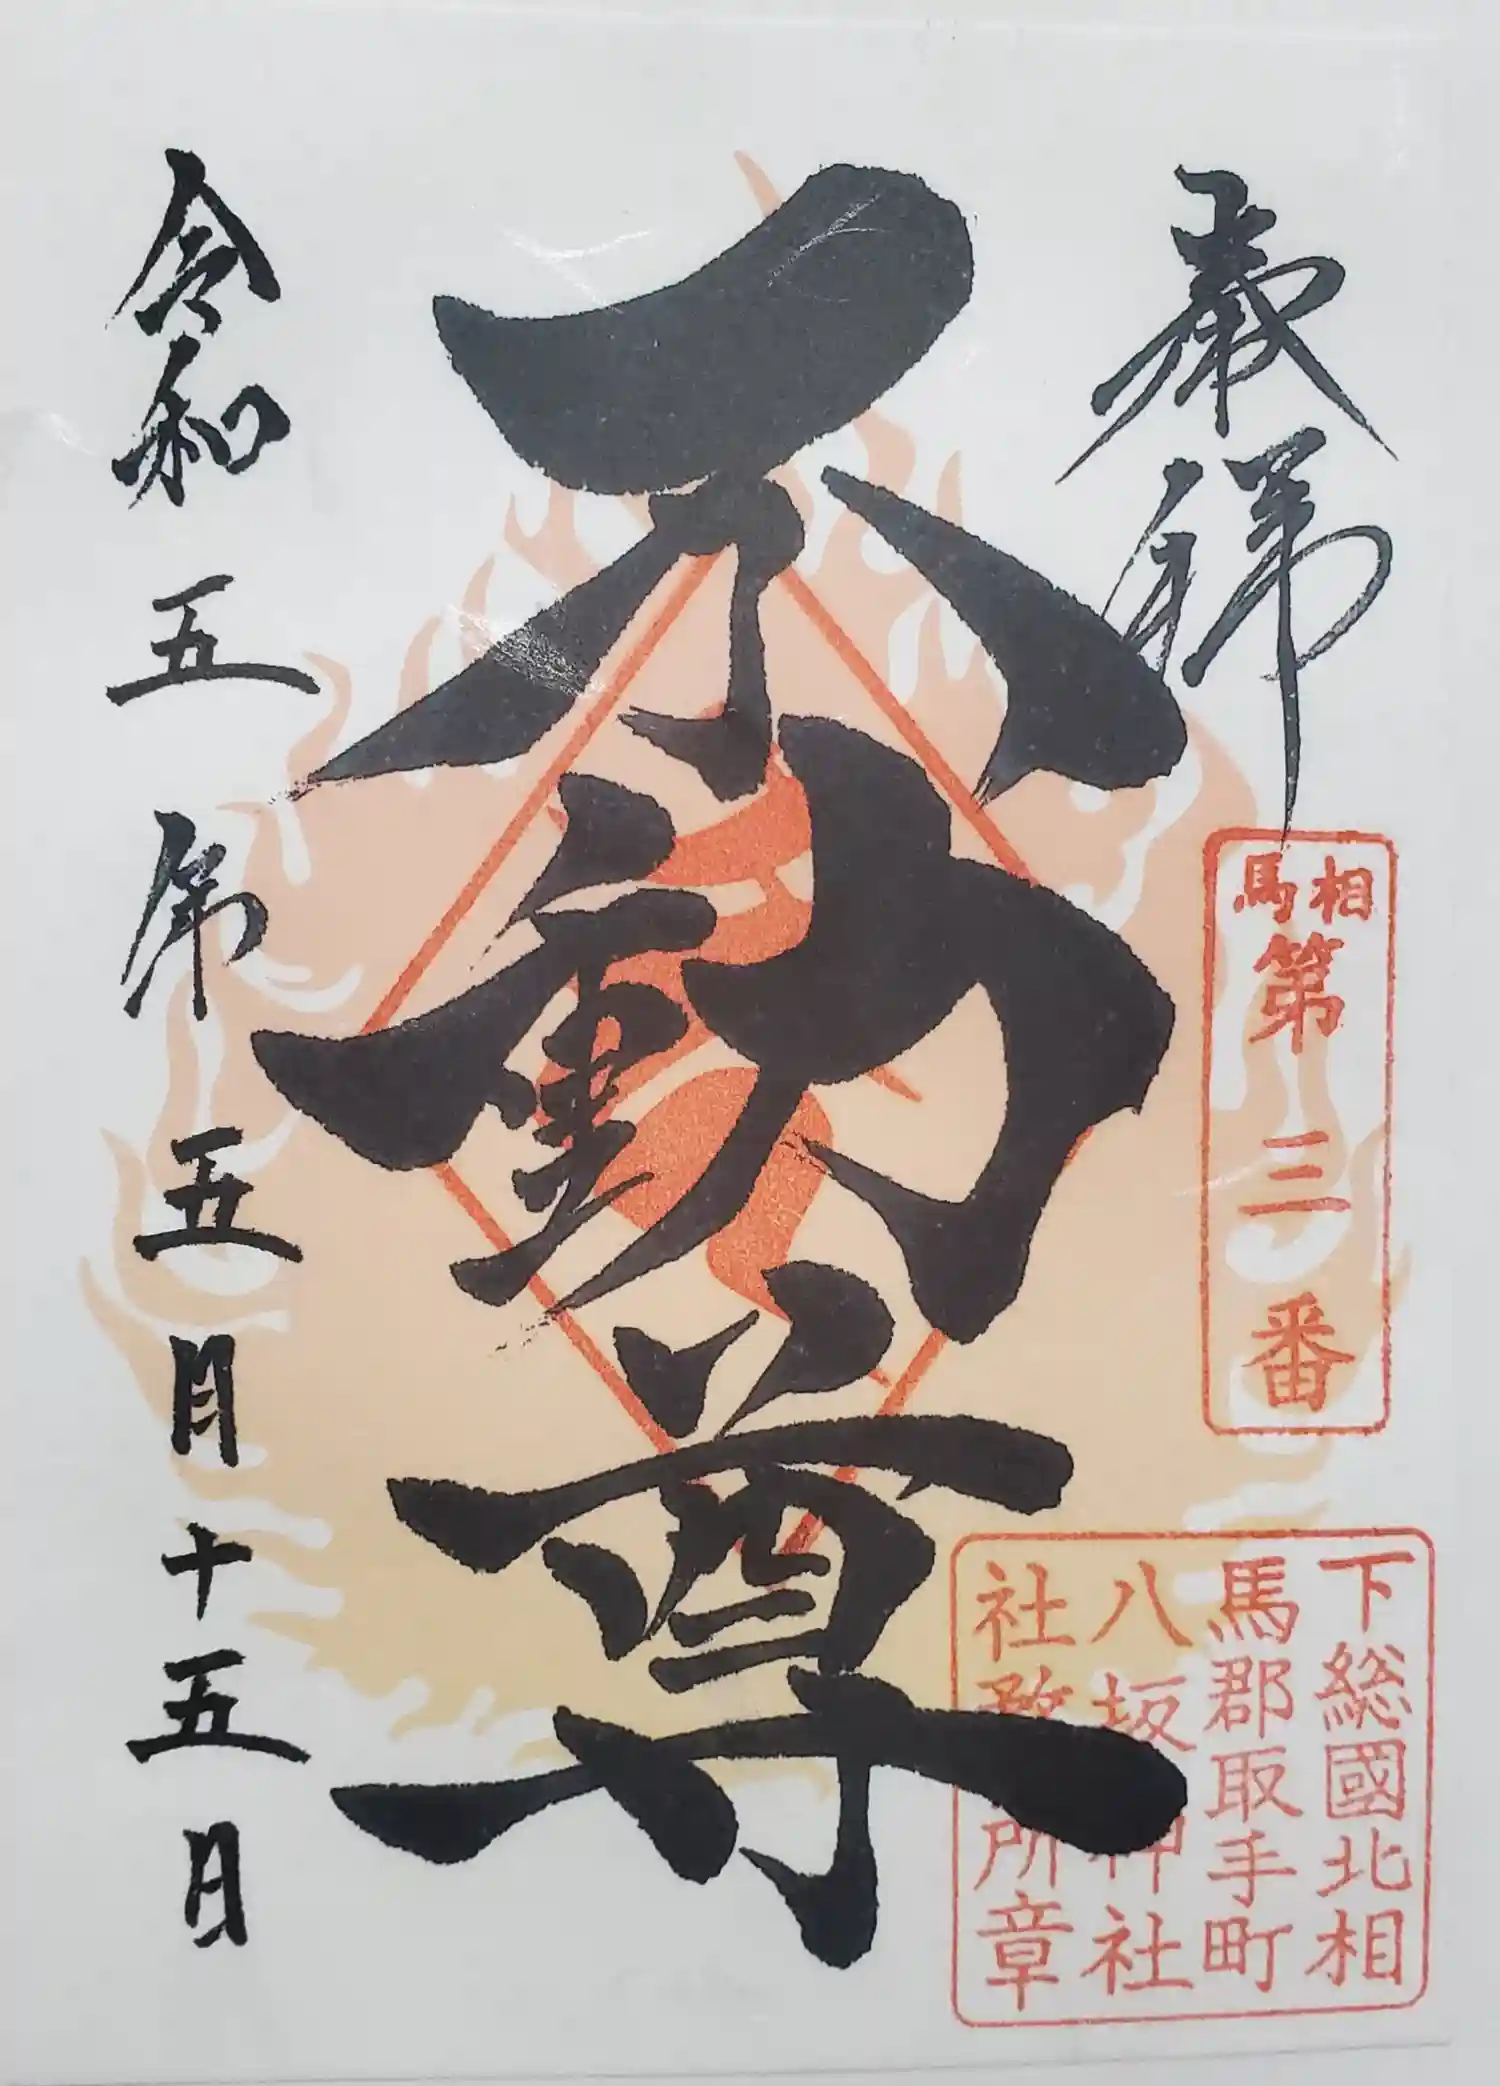 奉拝
相馬
第三番
不動尊
下総國北相
馬郡取手町
八坂神社
社務所章
令和五年五月十五日